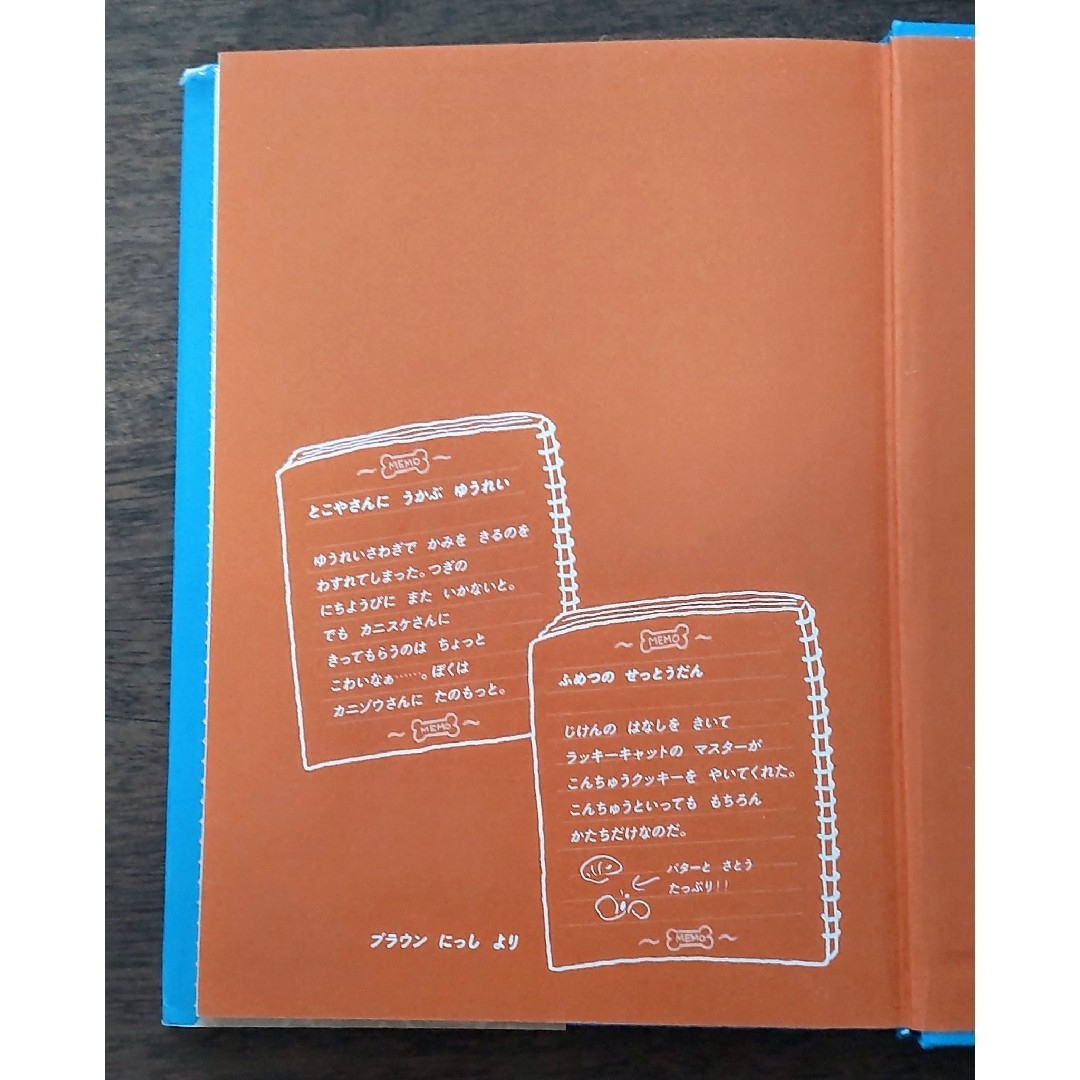 MEMO
とこやさんに うかぶ ゆうれい
ゆうれいさわぎで かみを きるのを
わすれてしまった。つぎの
にちようびに また いかないと。
でも カニスケさんに
きってもらうのは ちょっと
こわいなぁ……。ぼくは
カニゾウさんに たのもっと。
MEMO
MEMO
ふめつの せっとうだん
じけんの はなしを きいて
ラッキーキャットの マスターが
こんちゅうクッキーを やいてくれた。
こんちゅうといっても もちろん
かたちだけなのだ。
バターと さとう
たっぷり!!
MEMO
ブラウン にっし より